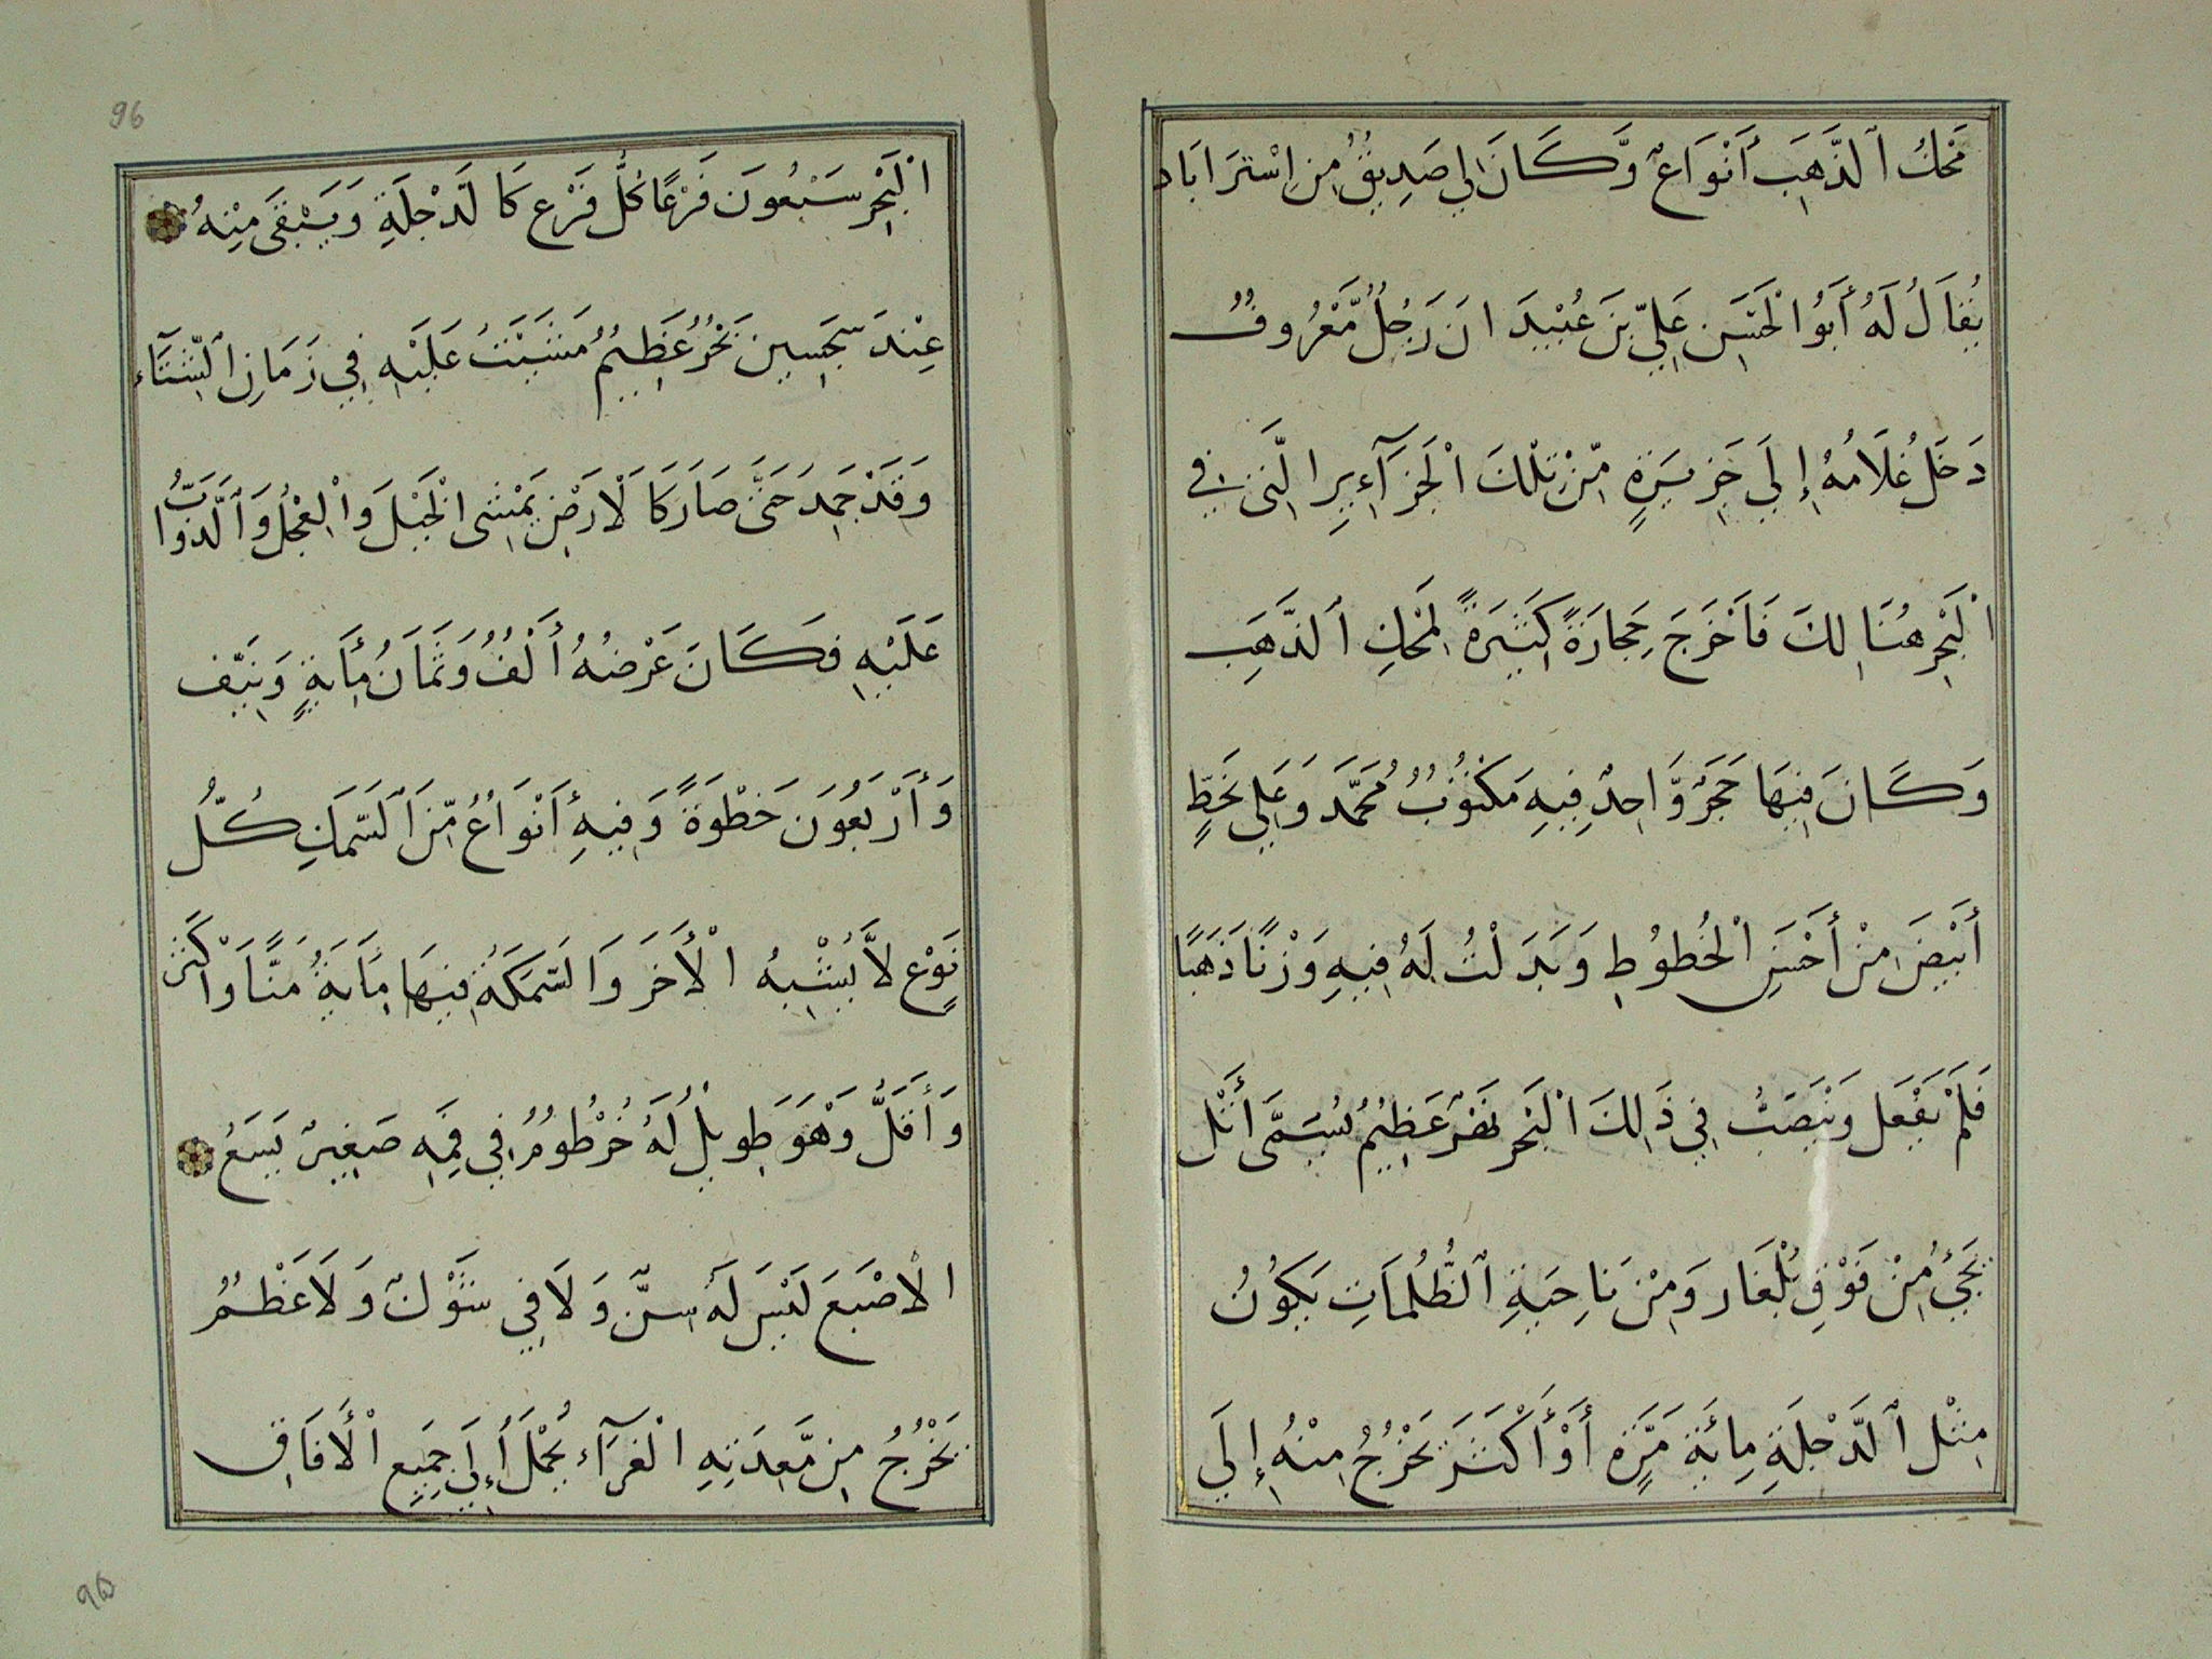 مَحَكُ ٱلذَّهَبِ أَنْوَاعٌ وَّكَانَ لِي صَدِيقٌ مِنِ اِسْتَرَابَاد
يُقَالُ لَهُ أَبُو الْحَسَنِ عَلِيِّ بْنَ عُبَيْدَ انَ رَجُلٌ مَّعْرُوفٌ
دَخَلَ غُلَامُهُ إِلَي جَزِيرَةٍ مِّنْ تِلْكَ الْجَزَآءِيرِ الَّتِي فِي
الْبَحْرِ هُنَالِكَ فَاَخْرَجَ حِجَارَةً كَثِيرَةً لِمَحَكِ ٱلذَّهَبِ
وَكَانَ فِيهَا حَجَرٌ وَّاحِدٌ فِيهِ مَكْتُوبٌ مُحَمَّدَ وَعَلِي بِخَطٍّ
أَبْيَضَ مِنْ أَحْسَنِ الْخُطُوطِ وَبَدَلْتُ لَهُ فِيهِ وَزْنًا ذَهَبًا
فَلَمْ يَفْعَل وَيَنْصَبُّ فِي ذَلِكَ الْبَحْرِ نَهْرٌ عَظِيمٌ يُسَمَّى أَثْل
يَجِئُ مِنْ فَوْقِ بُلْغَار وَمِنْ نَاحِيَةِ ٱلظُّلُمَاتِ يَكُونُ
مِثْل ٱلدَّجْلَةِ مِائَةَ مَرَّةٍ أَوْ أَكْثَرَ يَخْرُجُ مِنْهُ إِلَي
96
الْبَحْرِ سَبْعُونَ فَرْعًا كُلُّ فَرْعٍ كَالدَّجْلَةِ وَيَبْقَى مِنْهُ
عِنْدَ سَجَسِين نَحْرٌ عَظِيمٌ مَشَيْتُ عَلَيْهِ فِي زَمَانِ الشِّتَآء
وَقَدْ جَمِدَ حَتَّى صَارَ كَالْاَرَضِ يَمْشِى الْخَيْلَ وَالْعِجْلُ وَالدَّوَابُّ
عَلَيْهِ فَكَانَ عَرْضُهُ أَلْفٌ وَثَمَانُ مِأَيةٍ وَنَيِّف
وَأَرْبَعُوَنَ خَطْوَةً وَفِيهِ أَنْوَاعٌ مِّنَ ٱلسَّمَكِ كُلُّ
نَوْعٍ لَّا يُشْبِهُ الْأَخَرَ وَالسَّمَكَةُ فِيهَا مِأَيَةُ مَنًّا وَاَكْثَر
وَأَقَلَّ وَهْوَ طَوِيلٌ لَهُ خُرْطُومٌ فِي فَمِهِ صَغِيرٌ يَسَعُ
الْاَصْبَعَ لَيْسَ لَهُ سِنٌّ وَلَا فِي شَوْكٌ وَلَا عَظْمٌ
يَخْرُجُ مِنْ مَّعِدَتِهِ الْغِرَآء يُحْمَلُ إِلَي جَمِيعِ الْأَفَاقِ
96